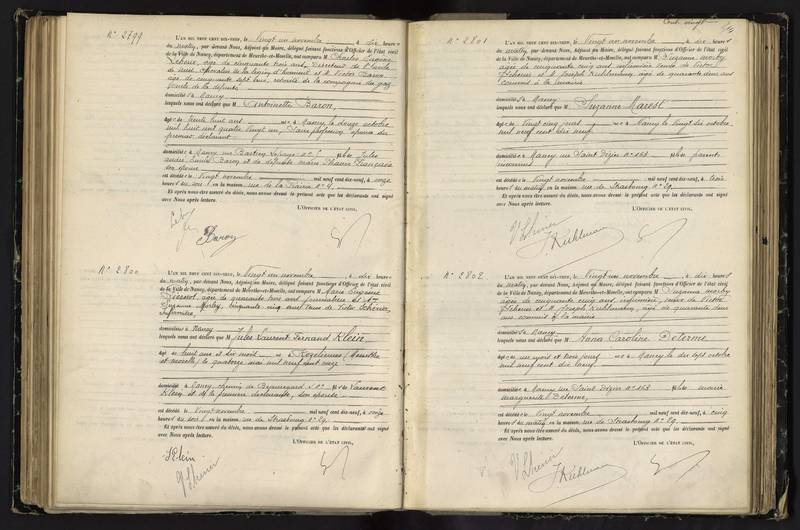 N° 2799
L'AN MIL NEUF CENT DIX-NEUF, le vingt un novembre, à dix heures
du matin, par devant Nous, Adjoint au Maire, délégué faisant fonctions d'Officier de l'état civil
de la Ville de Nancy, département de Meurthe-et-Moselle, ont comparu M Charles Eugène
âgé de cinquante trois ans, Directeur de l'école
et Victor Baron
âgé de cinquante sept ans, retraité de la compagnie du gaz
de la défunte
domiciliés à Nancy
lesquels nous ont déclaré que M Antoinette Baron,
âgée de trente huit ans née à Nancy le douze octobre
mil huit cent quatre vingt un, Sans profession, épouse du
premier déclarant
domiciliée à Nancy rue Bastien Lepage n° fille de Jules
Baron et de défunte Marie Française
son épouse
est décédée le vingt novembre mil neuf cent dix-neuf, à onze
heures du soir en la maison, rue de la Prairie n° 4.
Et après nous être assuré du décès, nous avons dressé le présent acte que les déclarants ont signé
avec Nous après lecture.
L'OFFICIER DE L'ÉTAT CIVIL,
Baron
N° 2800
L'AN MIL NEUF CENT DIX-NEUF, le vingt un novembre, à dix heures
du matin, par devant Nous, Adjoint au Maire, délégué faisant fonctions d'Officier de l'état civil
de la Ville de Nancy, département de Meurthe-et-Moselle, ont comparu M Marie Eugénie
âgée de quarante trois ans, journalière et
Suzanne Morby, cinquante cinq ans veuve de Victor
infirmière,
domiciliées à Nancy
lesquels nous ont déclaré que M Jules Laurent Fernand Klein,
âgé de huit ans et dix mois né à Rozelieures (Meurthe
et moselle) le quatorze mai mil neuf cent onze
domicilié à Nancy, chemin de Beauregard n° fils de Laurent
Klein et de la première déclarante, son épouse
est décédé le vingt novembre mil neuf cent dix-neuf, à onze
heures du soir en la maison, rue de Strasbourg n° 29.
Et après nous être assuré du décès, nous avons dressé le présent acte que les déclarants ont signé
avec Nous après lecture.
L'OFFICIER DE L'ÉTAT CIVIL,
Klein
Cent vingt
N° 2801
L'AN MIL NEUF CENT DIX-NEUF, le vingt un novembre, à dix heures
du matin, par devant Nous, Adjoint au Maire, délégué faisant fonctions d'Officier de l'état civil
de la Ville de Nancy, département de Meurthe-et-Moselle, ont comparu M Suzanne Morby
âgée de cinquante cinq ans infirmière veuve de Victor
et M Joseph Kuhlmann, âgé de quarante deux ans
commis à la mairie
domiciliés à Nancy
lesquels nous ont déclaré que M Suzanne Marest
âgée de vingt cinq jours née à Nancy le vingt six octobre
mil neuf cent dix neuf,
domiciliée à Nancy rue Saint Dizier n° 163 fille de parents
inconnus
est décédée le vingt novembre mil neuf cent dix-neuf, à trois
heures du matin, en la maison, rue de Strasbourg n° 29.
Et après nous être assuré du décès, nous avons dressé le présent acte que les déclarants ont signé
avec Nous après lecture.
L'OFFICIER DE L'ÉTAT CIVIL,
J Kuhlmann
N° 2802
L'AN MIL NEUF CENT DIX-NEUF, le vingt un novembre, à dix heures
du matin, par devant Nous, Adjoint au Maire, délégué faisant fonctions d'Officier de l'état civil
de la Ville de Nancy, département de Meurthe-et-Moselle, ont comparu M Suzanne Morby
âgée de cinquante cinq ans, infirmière, veuve de Victor
et M Joseph Kuhlmann, âgé de quarante deux
ans commis à la mairie
domiciliés à Nancy
lesquels nous ont déclaré que M Anna Caroline Delerme,
âgée de un mois et trois jours née à Nancy le dix sept octobre
mil neuf cent dix neuf
domiciliée à Nancy rue Saint Dizier n° 163 fille de marie
marguerite Delerme,
est décédée le vingt novembre mil neuf cent dix-neuf, à cinq
heures du matin, en la maison, rue de Strasbourg n° 29.
Et après nous être assuré du décès, nous avons dressé le présent acte que les déclarants ont signé
avec Nous après lecture.
L'OFFICIER DE L'ÉTAT CIVIL,
J Kuhlmann